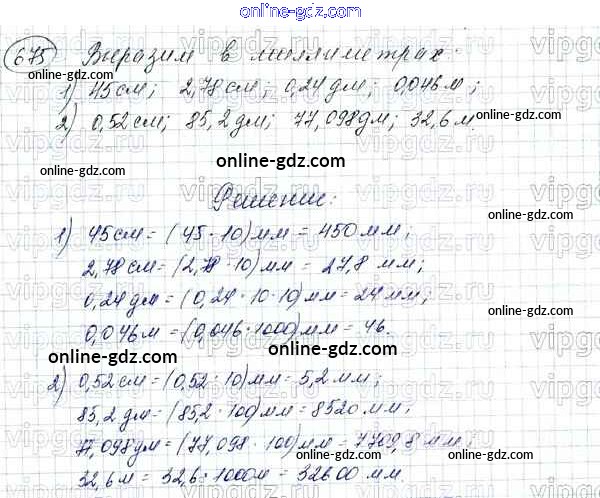 online-gdz.com
675 Выразим в миллиметрах:
1) 45см; 2,78см; 0,24дм; 0,046м;
2) 0,52см; 85,2дм; 77,098дм; 32,6м.
online-gdz.com
online-gdz.com
Решение:
online-gdz.com
1) 45см = (45 · 10)мм = 450мм;
2,78см = (2,78 · 10)мм = 27,8 мм;
0,24дм = (0,24 · 10 · 10)мм = 24мм;
online-gdz.com
0,046м = (0,046 · 1000)мм = 46.
online-gdz.com
online-gdz.com
2) 0,52см = (0,52 · 10)мм = 5,2мм;
85,2дм = (85,2 · 100)мм = 8520мм;
online-gdz.com
77,098дм = (77,098 · 100)мм = 7709,8мм;
32,6м = 32,6 · 1000м = 32600 мм.
online-gdz.com